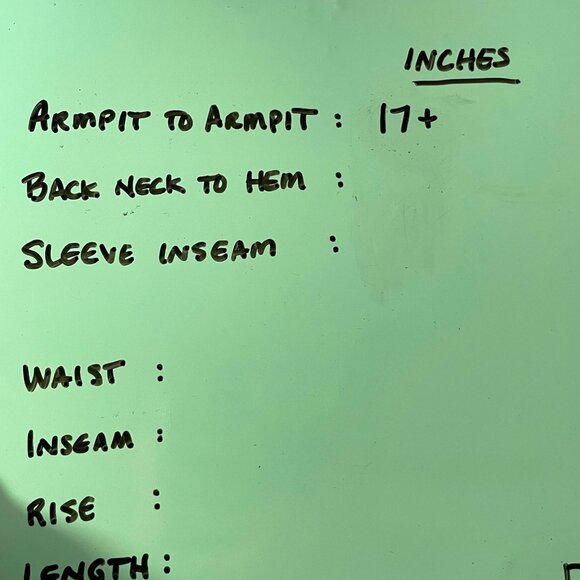 INCHES
ARMPIT TO ARMPIT : 17+
BACK NECK TO HEM :
SLEEVE INSEAM :
WAIST :
INSEAM :
RISE :
LENGTH :